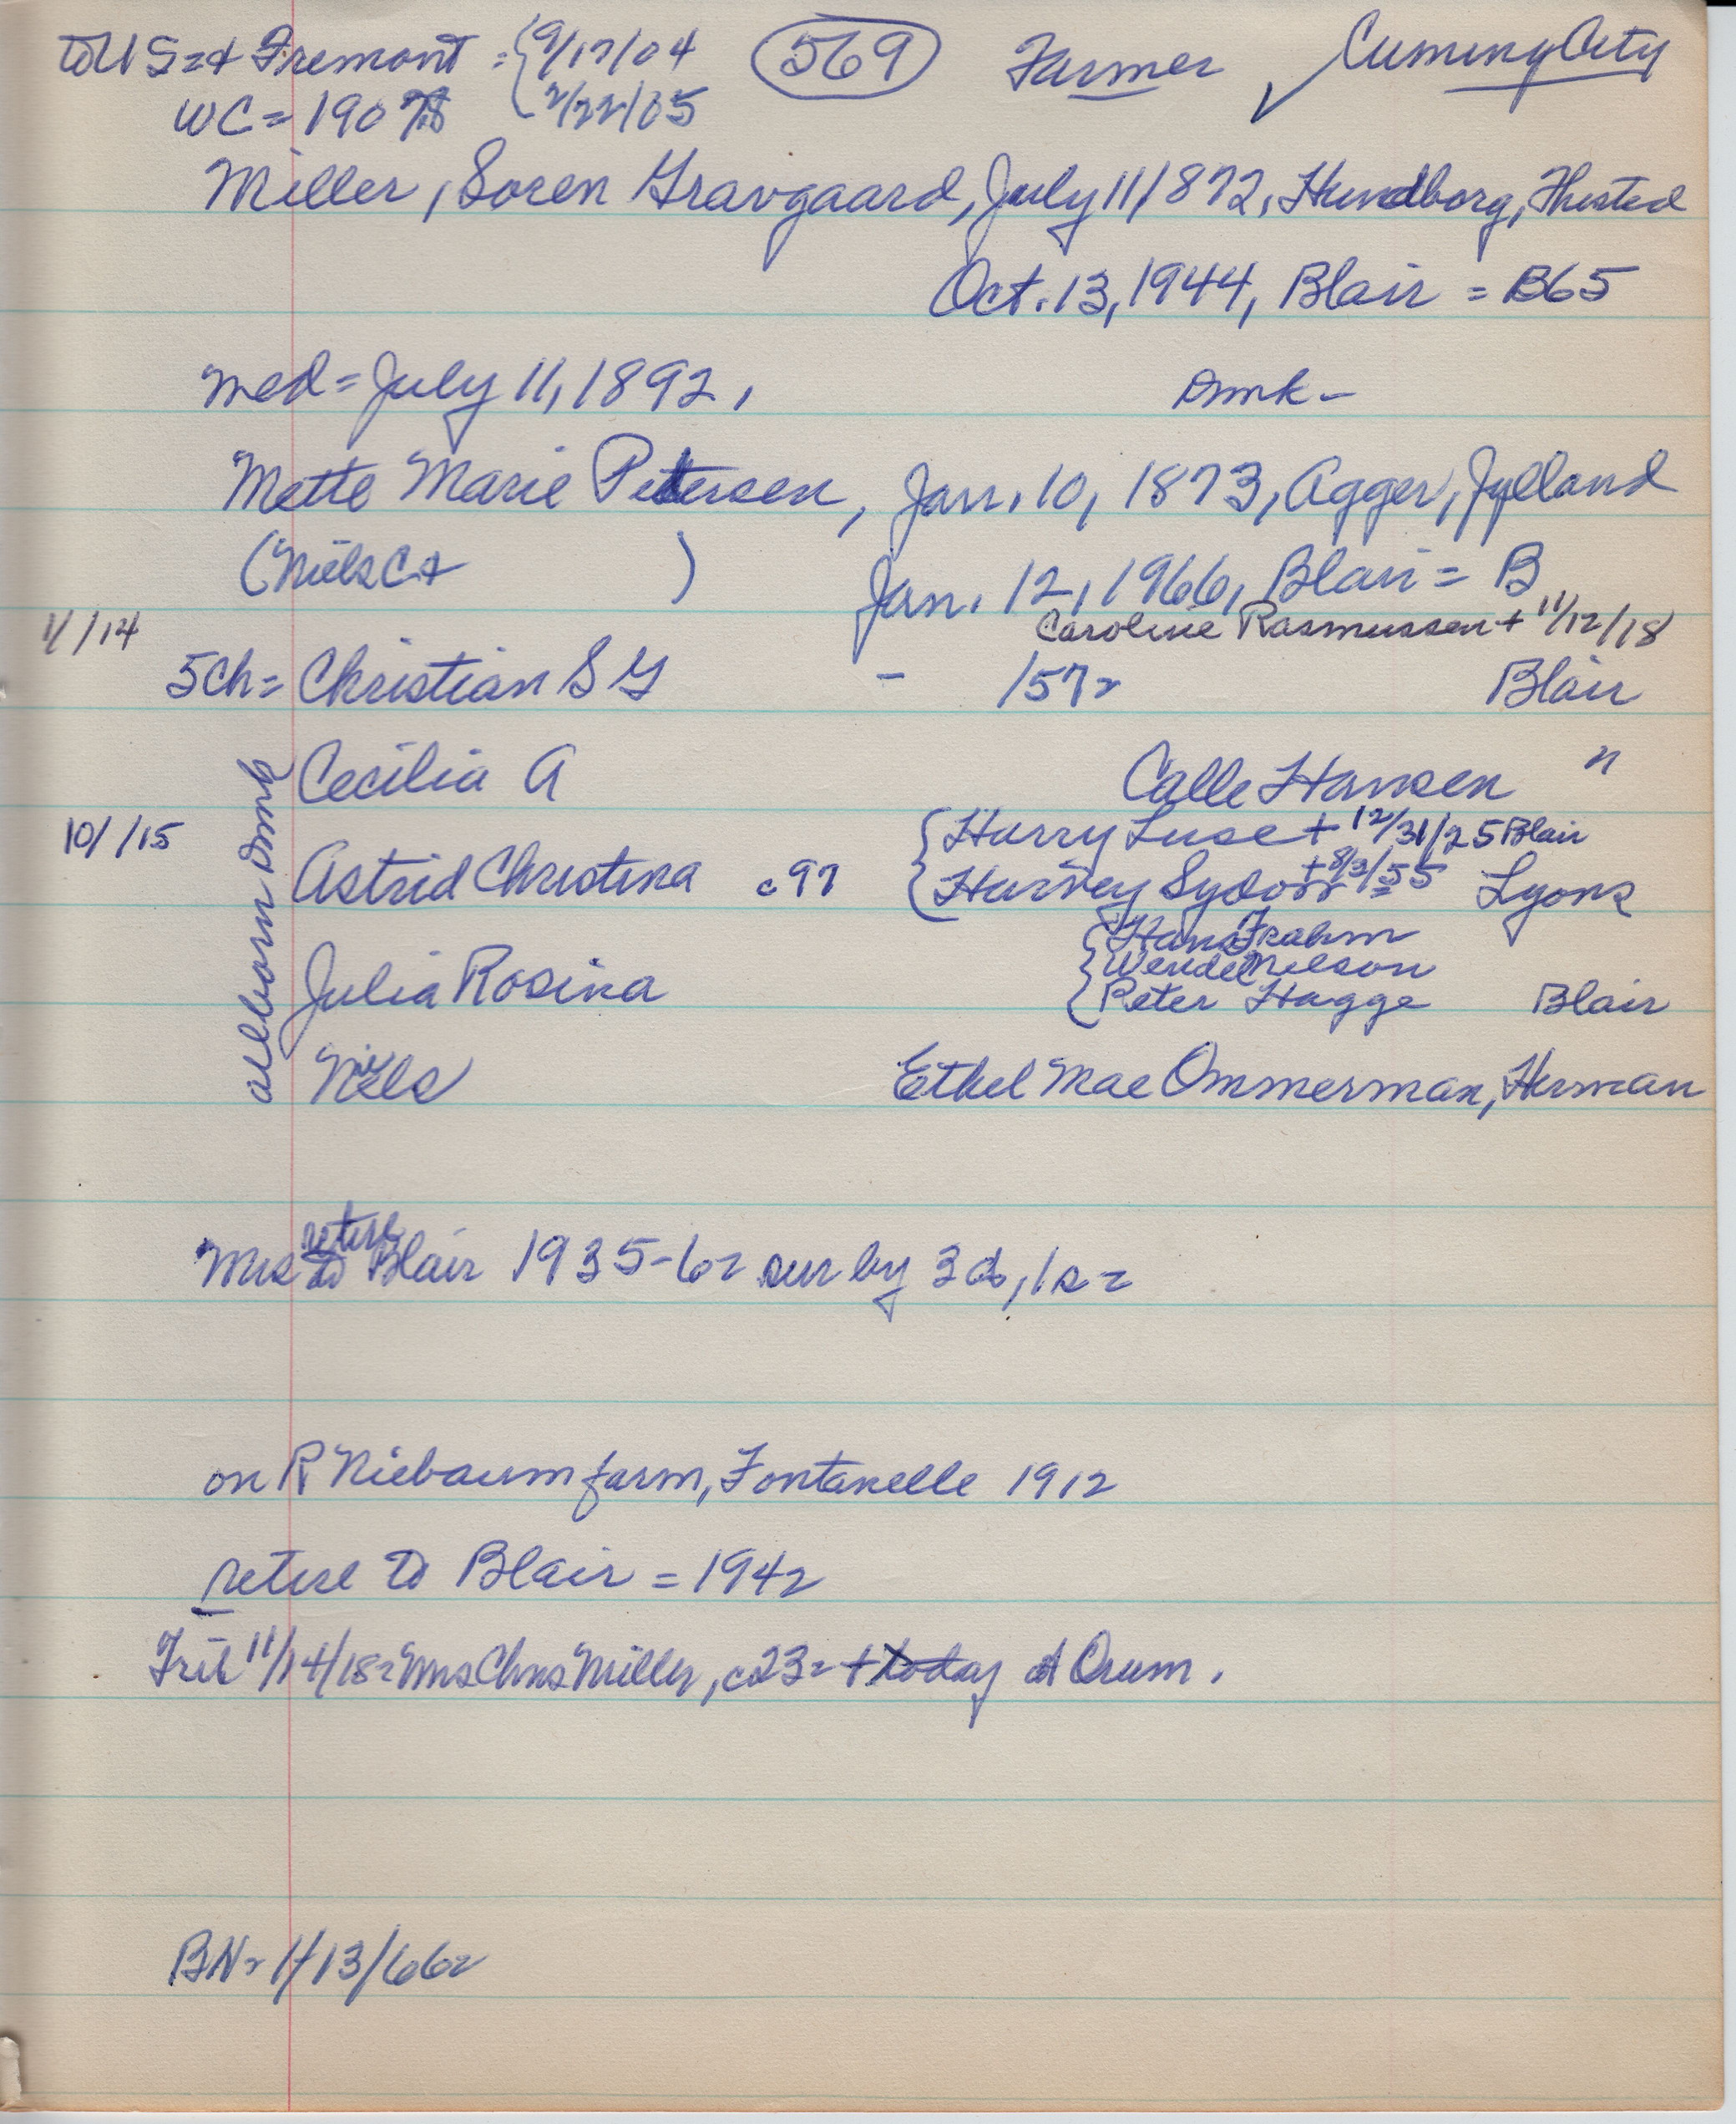 to US = & Fremont = { 9/17/04 (569) Farmer ✓ Cuming City
WC = 1907 2/22/05
Miller, Soren Gravgaard, July 11/1872, Hundborg, Thisted
Oct. 13, 1944, Blair = B65
med = July 11, 1892, Dmk -
Mette Marie Petersen, Jan. 10, 1873, Agger, Jylland
(Niels C & ) Jan. 12, 1966, Blair = B
1/ /14 Caroline Rasmussen + 11/12/18
5 Ch = Christian S G - 157 = Blair
all born Dmk
Cecilia A Calle Hansen "
10/ /15 { Harry Luse + 12/31/25 Blair
Astrid Christina c 97 { Harvey + 8/3/55 Lyons
{ Hans Frahm
{ Wendel Nelson
Julia Rosina { Peter Hagge Blair
Niels Ethel Mae Ommerman, Herman
retire
Mrs to Blair 1935-6 = sur by 3 d, 1 s =
on R Niebaum farm, Fontanelle 1912
retire to Blair = 1942
Trib 11/14/18 = Mrs Chris Miller, c 23 = + today at Orum.
BN = 1/13/66 =